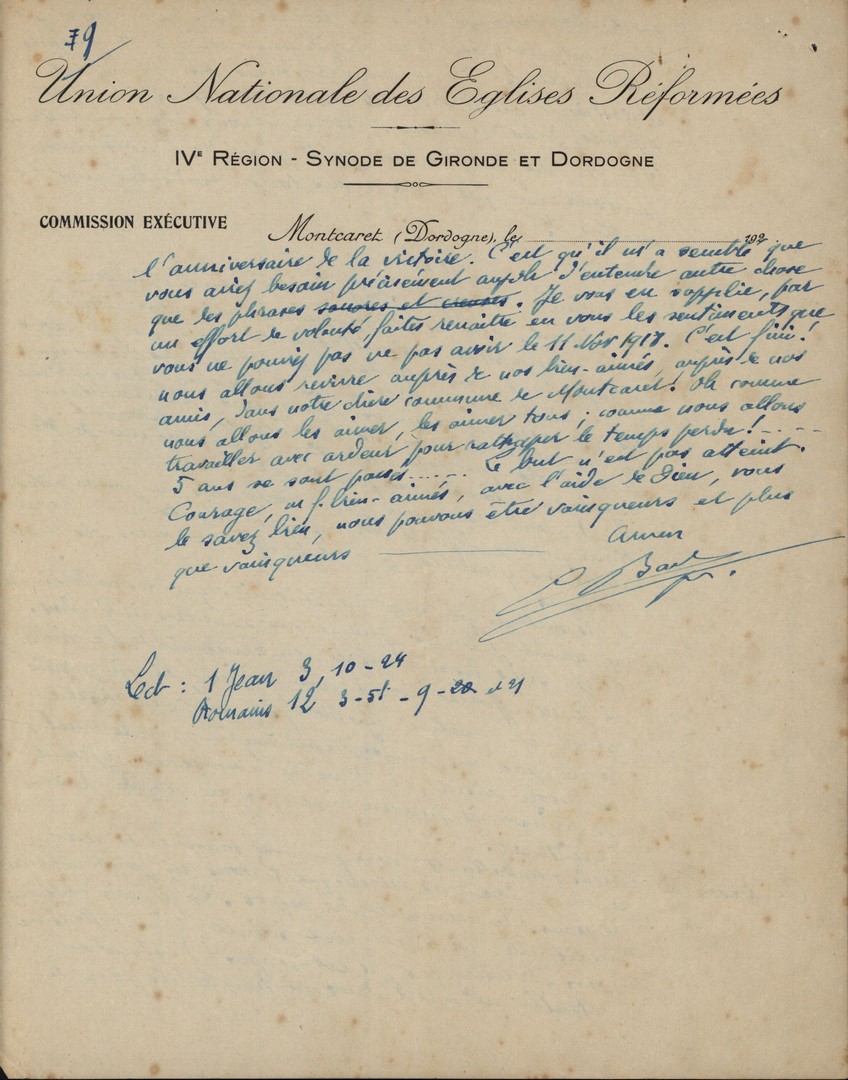 79
Union Nationale des Eglises Réformées
IVE RÉGION - SYNODE DE GIRONDE ET DORDOGNE
COMMISSION EXÉCUTIVE
Montcaret (Dordogne), le 192
l'anniversaire de la victoire. C'est qu'il m'a semblé que
vous aviez besoin précisément aujdh d'entendre autre chose
que des phrases sonores et creuses. Je vous en supplie, par
un effort de volonté faites renaître en vous les sentiments que
vous ne pouviez pas ne pas avoir le 11 Nov 1918. C'est fini!
nous allons revivre auprès de nos bien-aimés, auprès de nos
amis, dans notre chère commune de Montcaret! Oh comme
nous allons les aimer, les aimer tous; comme nous allons
travailler avec ardeur pour rattraper le temps perdu!.....
5 ans se sont passés...... Le but n'est pas atteint.
Courage, m. f. bien-aimés, avec l'aide de Dieu, vous
le savez bien, nous pouvons être vainqueurs et plus
que vainqueurs
Amen
Lect : 1 Jean 3, 10-24
Romains 12 3-5 - 9-20 et 21